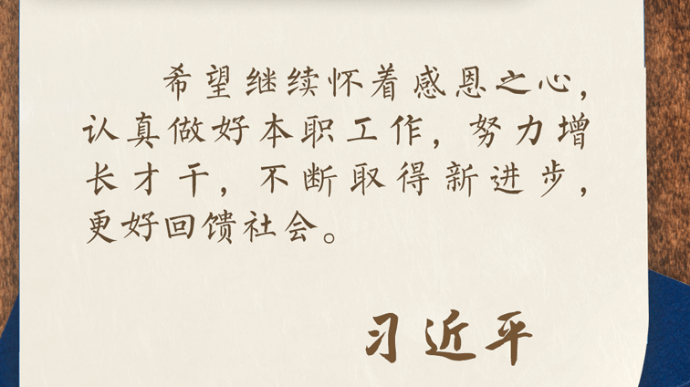 希望继续怀着感恩之心，
认真做好本职工作，努力增
长才干，不断取得新进步，
更好回馈社会。
习近平